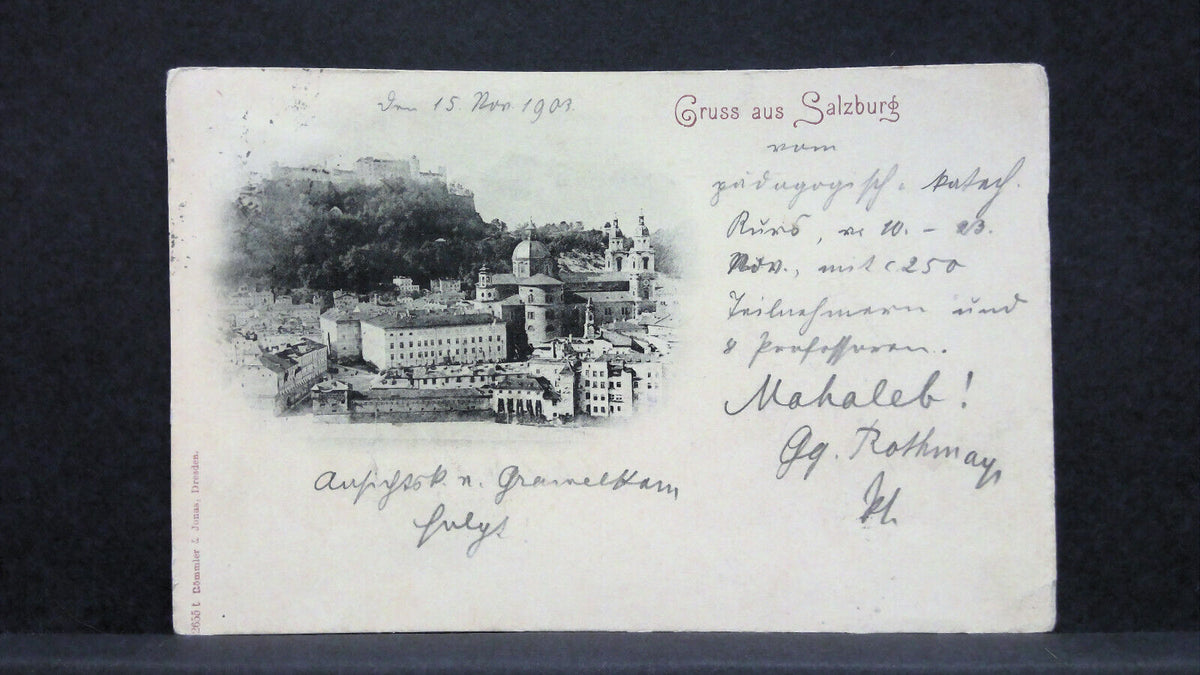 Den 15. Nov. 1903.
Gruss aus Salzburg
vom
pädagogisch. katech.
Kurs, v. 10. – 23.
Nov., mit c 250
Teilnehmern und
8 Professoren.
Mahaleb!
Gg. Rothmayr
Ansichtsk. v.
folgt
2655 t Römmler & Jonas, Dresden.